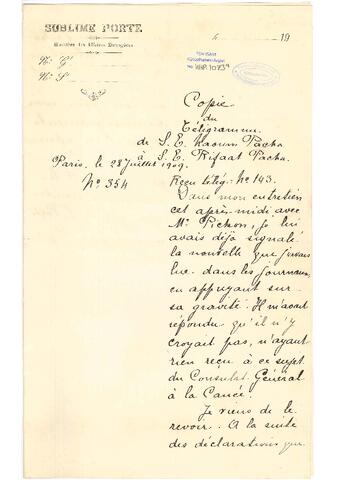 SUBLIME PORTE
Ministère des Affaires Étrangères
N.º G.
N.º S.
le 19
Copie
du
Télégramme
de S. E. Naoum Pacha
à S. E. Rifaat Pacha.
Paris, le 28 Juillet 1909.
Nº 354
Reçu télég. Nº 143.
Dans mon entretien
cet après-midi avec
Mr Pichon, je lui
avais déjà signalé
la nouvelle que j'avais
lue dans les journaux
en appuyant sur
sa gravité. Il m'avait
répondu qu'il n'y
croyait pas, n'ayant
rien reçu à ce sujet
du Consulat Général
à la Canée.
Je viens de le
revoir. A la suite
des déclarations que